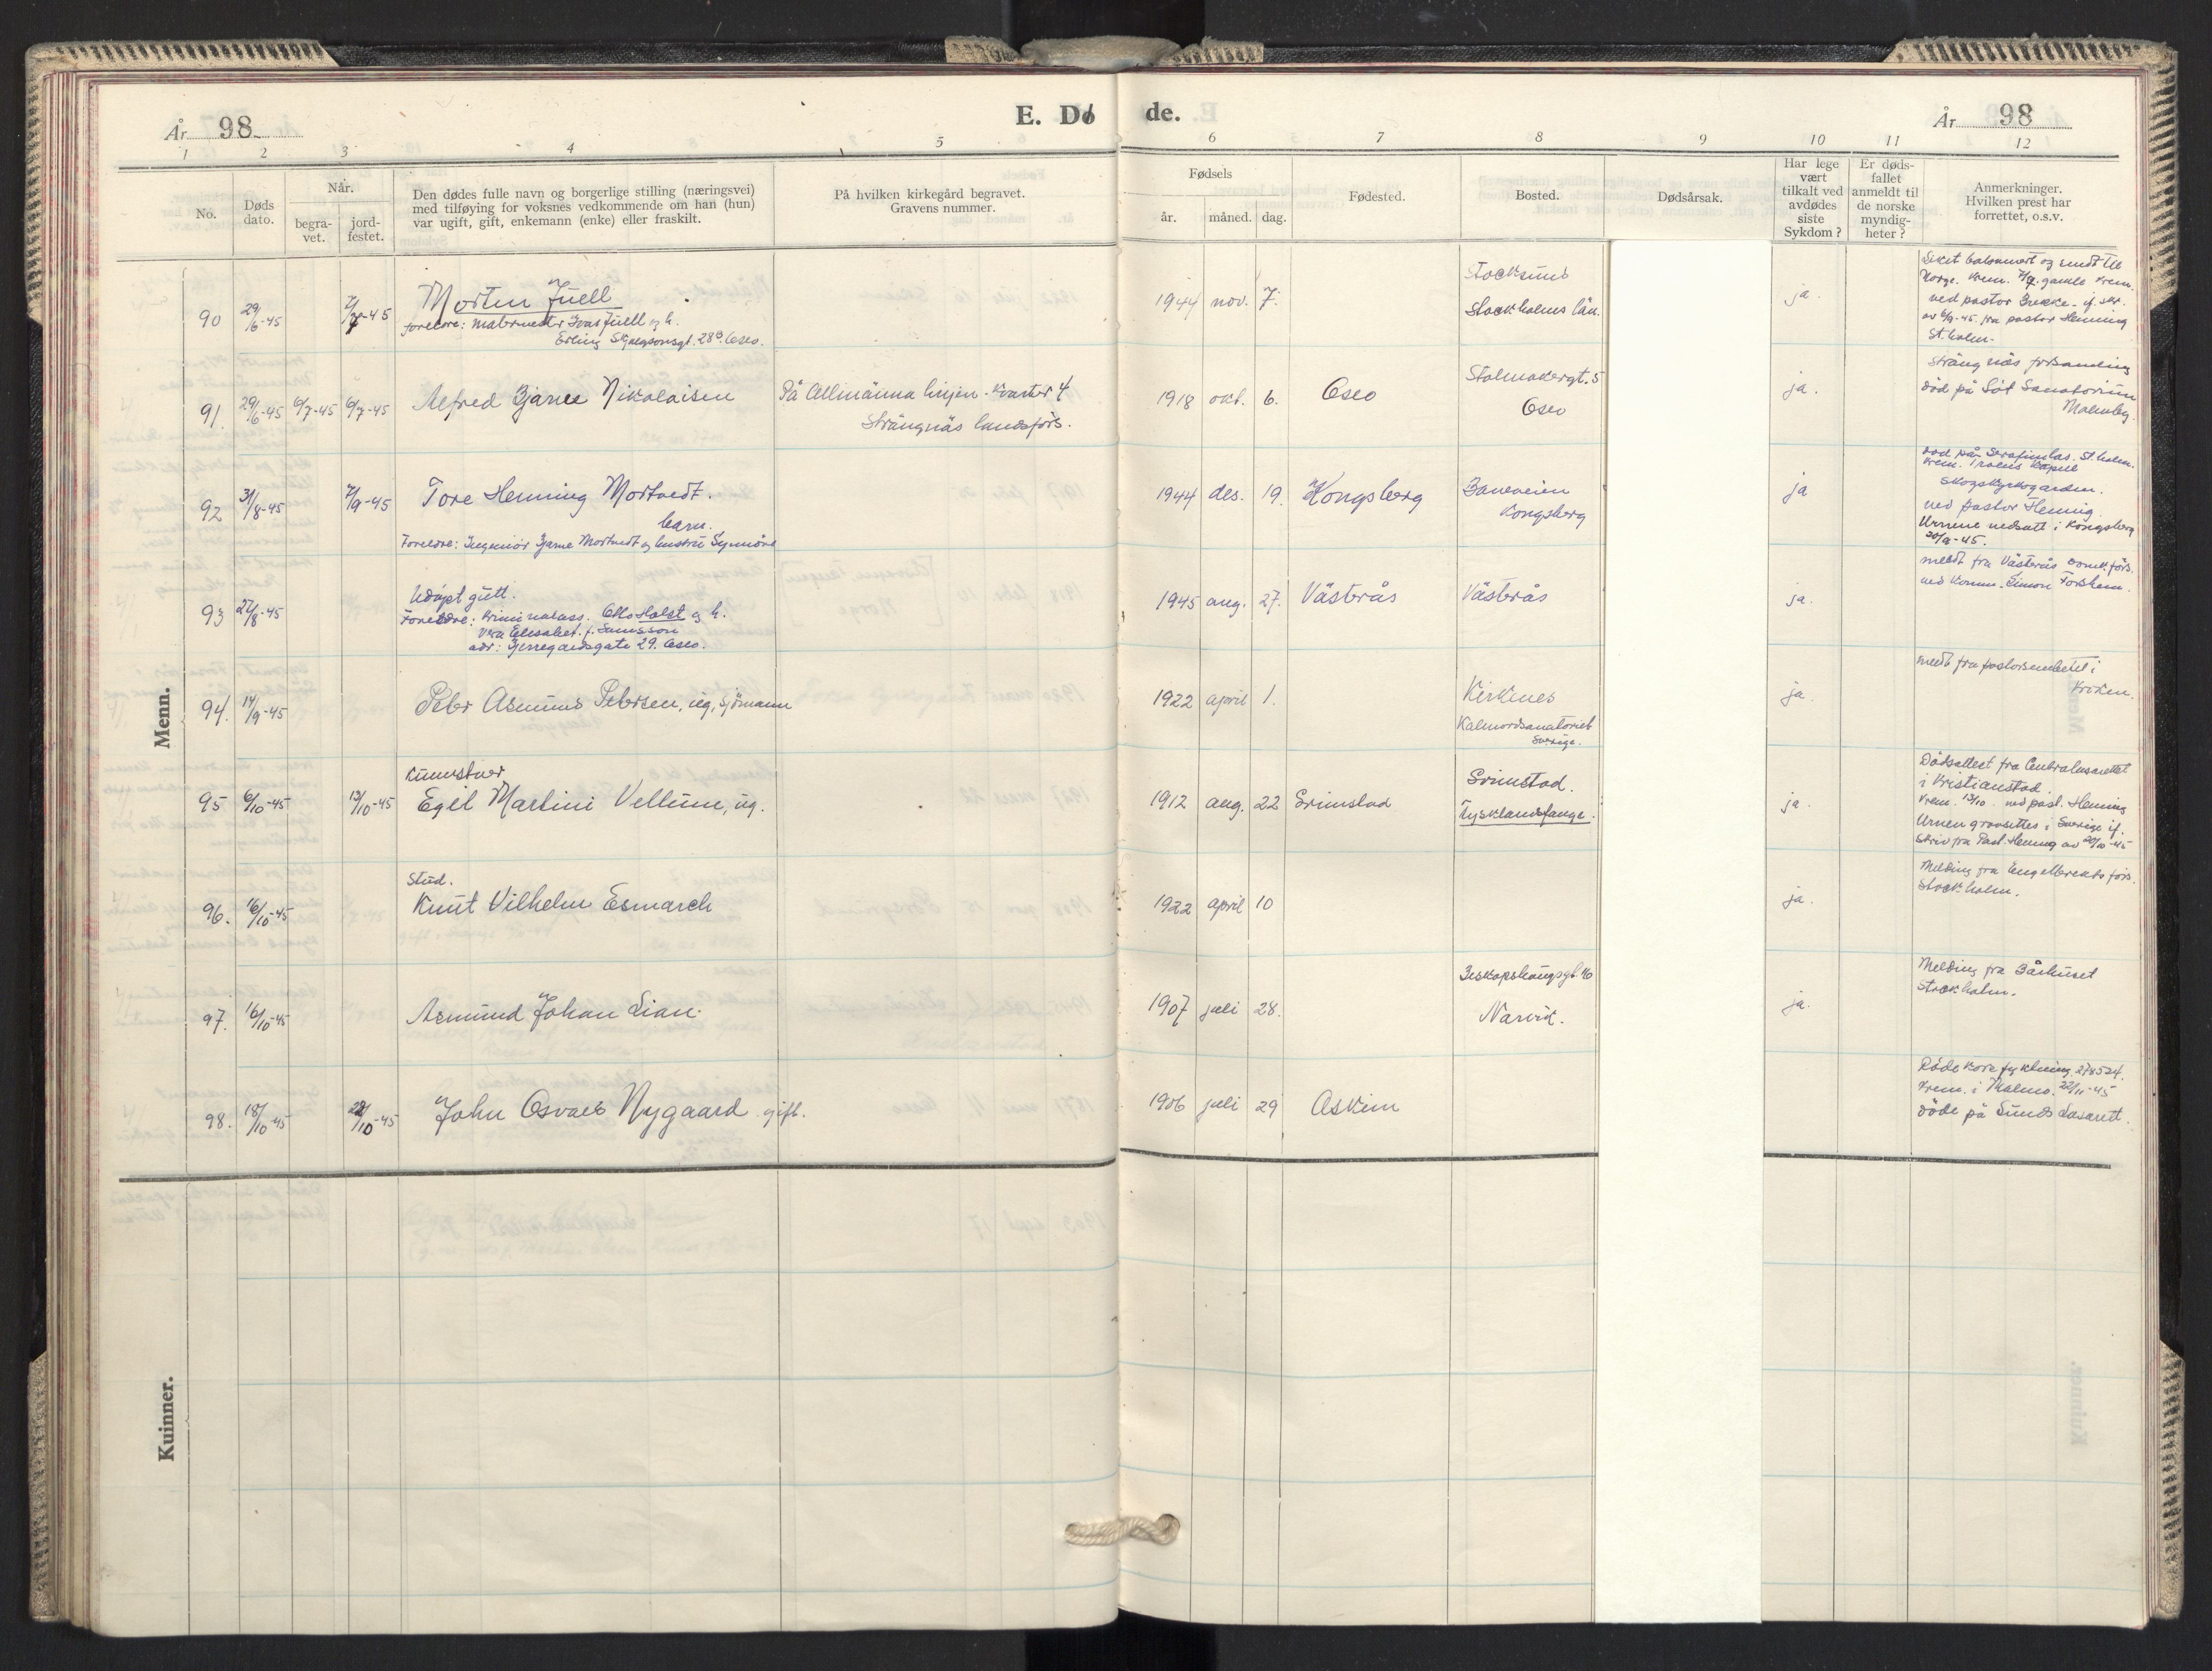 År 98
E. Dø
de.
År 98
1
2
3
4
5
6
7
8
9
10
11
12
No.
Døds dato.
Når.
begra-vet.
jord-festet.
Den dødes fulle navn og borgerlige stilling (næringsvei)
med tilføying for voksnes vedkommende om han (hun)
var ugift, gift, enkemann (enke) eller fraskilt.
På hvilken kirkegård begravet.
Gravens nummer.
Fødsels
år.
måned.
dag.
Fødested.
Bosted.
Dødsårsak.
Har lege
vært
tilkalt ved
avdødes
siste
Sykdom?
Er døds-
fallet
anmeldt til
de norske
myndig-
heter?
Anmerkninger.
Hvilken prest har
forrettet, o.s.v.
Menn.
90 29/6-45
Morten Juell
foreldre: malermester Ivar Juell og h.
Erling Skjalgsonsgt. 28B. Oslo.
1944 nov. 7.
Stocksund
Stockholms län.
ja.
Liket balsamert og sendt til
Norge. Krem. gamle krem.
ved pastor Brekke - if. skr.
fra pastor Henning
St.holm.
91. 29/6-45 6/7-45 6/7-45 Alfred Bjarne Nikolaisen
På Allmänna linjen. Kvarter 4
Strängnäs landsförs.
1918 okt. 6. Oslo
Stolmakergt. 5
Oslo
ja.
Strängnäs forsamling
död på Söt Sanatorium
Malmby.
92 31/8-45 7/9-45 Tore Henning Mortvedt.
barn.
Foreldre: Ingeniør Bjarne Mortvedt og hustru Synnöve
1944 des. 19. Kongsberg
Baneveien
Kongsberg
ja
död på Serafimlas. St.holm.
Krem.
Skogskyrkogården.
ved pastor Hennig.
Urnene nedsatt i Kongsberg
93 27/8-45
Udöpt gutt.
Foreldre: Kriminalass. Otto Holst og h.
Vera Elisabet f. Samsson
adr: Bjerregaardsgate 29. Oslo.
1945 aug. 27. Västerås
Västerås
ja.
meldt fra Västerås domk.förs.
ved Komm. Simon Forshem.
94. 14/9-45 Peter Asmund Petersen, ug, sjömann
1922 april 1.
Kirkenes
Kalmordsanatoriet
Sverige.
ja.
meldt fra pastorsembetet i
95 6/10-45 13/10-45
Kunnstner
Egil Martini Vellum, ug.
1912 aug. 22 Grimstad
Grimstad.
Tysklandsfange.
ja.
Dödsattest fra Centrallasarettet
i Kristianstad.
Krem. 13/10. ved past. Henning
Urnen gravsettes i Sverige if.
skriv fra Past. Henning av 20/10-45
96. 16/10-45
Stud.
Knut Vilhelm Esmarch
1922 april 10
ja.
Melding fra Engelbrekts förs.
Stockholm.
97. 16/10-45 Asmund Johan Lian.
1907 juli 28.
Beskopshaugsgt. 16
Narvik.
ja.
Melding fra Bårhuset
Stockholm.
98. 18/10-45 John Osvald Nygaard. gift.
1906 juli 29 Askim
Röde Kors flyktning. 278524.
Krem. i Malmö. 22/11-45
döde på Lunds Lasarett.
Kuinner.